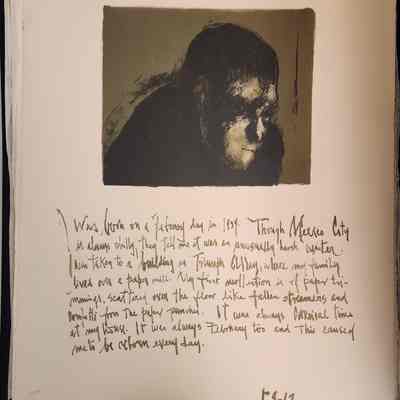 I Was born on a February day in 1934. Though Mexico City
is always chilly, they tell me it was an unusually harsh winter.
I was taken to a building in Triumph Alley, where my family
lived over a paper mill. My first recollection is of paper trim-
mings, scattered over the floor like fallen streamers and
confetti from the paper punching. It was always Carnival time
at my house. It was always February too and this caused
me to be reborn every day.